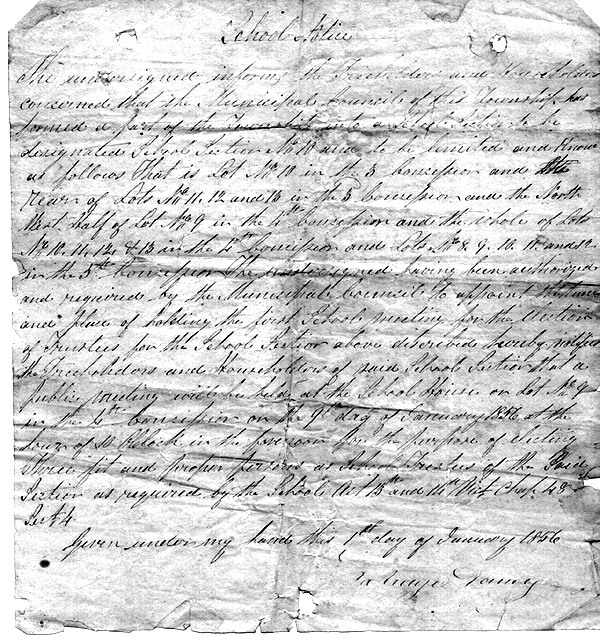 School Notice
The undersigned informs the Freeholders and Householders
concerned that the Municipal Council of this Township has
formed a part of the Township into a School Section to be
designated School Section No 10 and to be limited and Known
as follows that is Lot No 10 in the 3 Concession and the
Rear of Lots No 11, 12 and 13 in the 3 Concession and the North
West half of Lot No 9 in the 4th Concession and the whole of Lots
No 10, 11, 12, & 13 in the 4th Concession and Lots No 8, 9, 10, 11 and 12
in the 5th Concession The undersigned having been authorized
and required by the Municipal Council to appoint the time
and place of holding the first School meeting for the election
of Trustees for the School Section above discribed hereby notifies
the Freeholders and Householders of said School Section that a
public meeting will be held at the School House on Lot No 9
in the 4th Concession on the 9th day of January 1856 at the
hour of 10 Oclock in the forenoon for the purpose of electing
three fit and proper persons as School Trustees of the Said
Section as required by the School Act 13th and 14th Vict Chap 48
Sect 4
Given under my hand this 1st day of January 1856